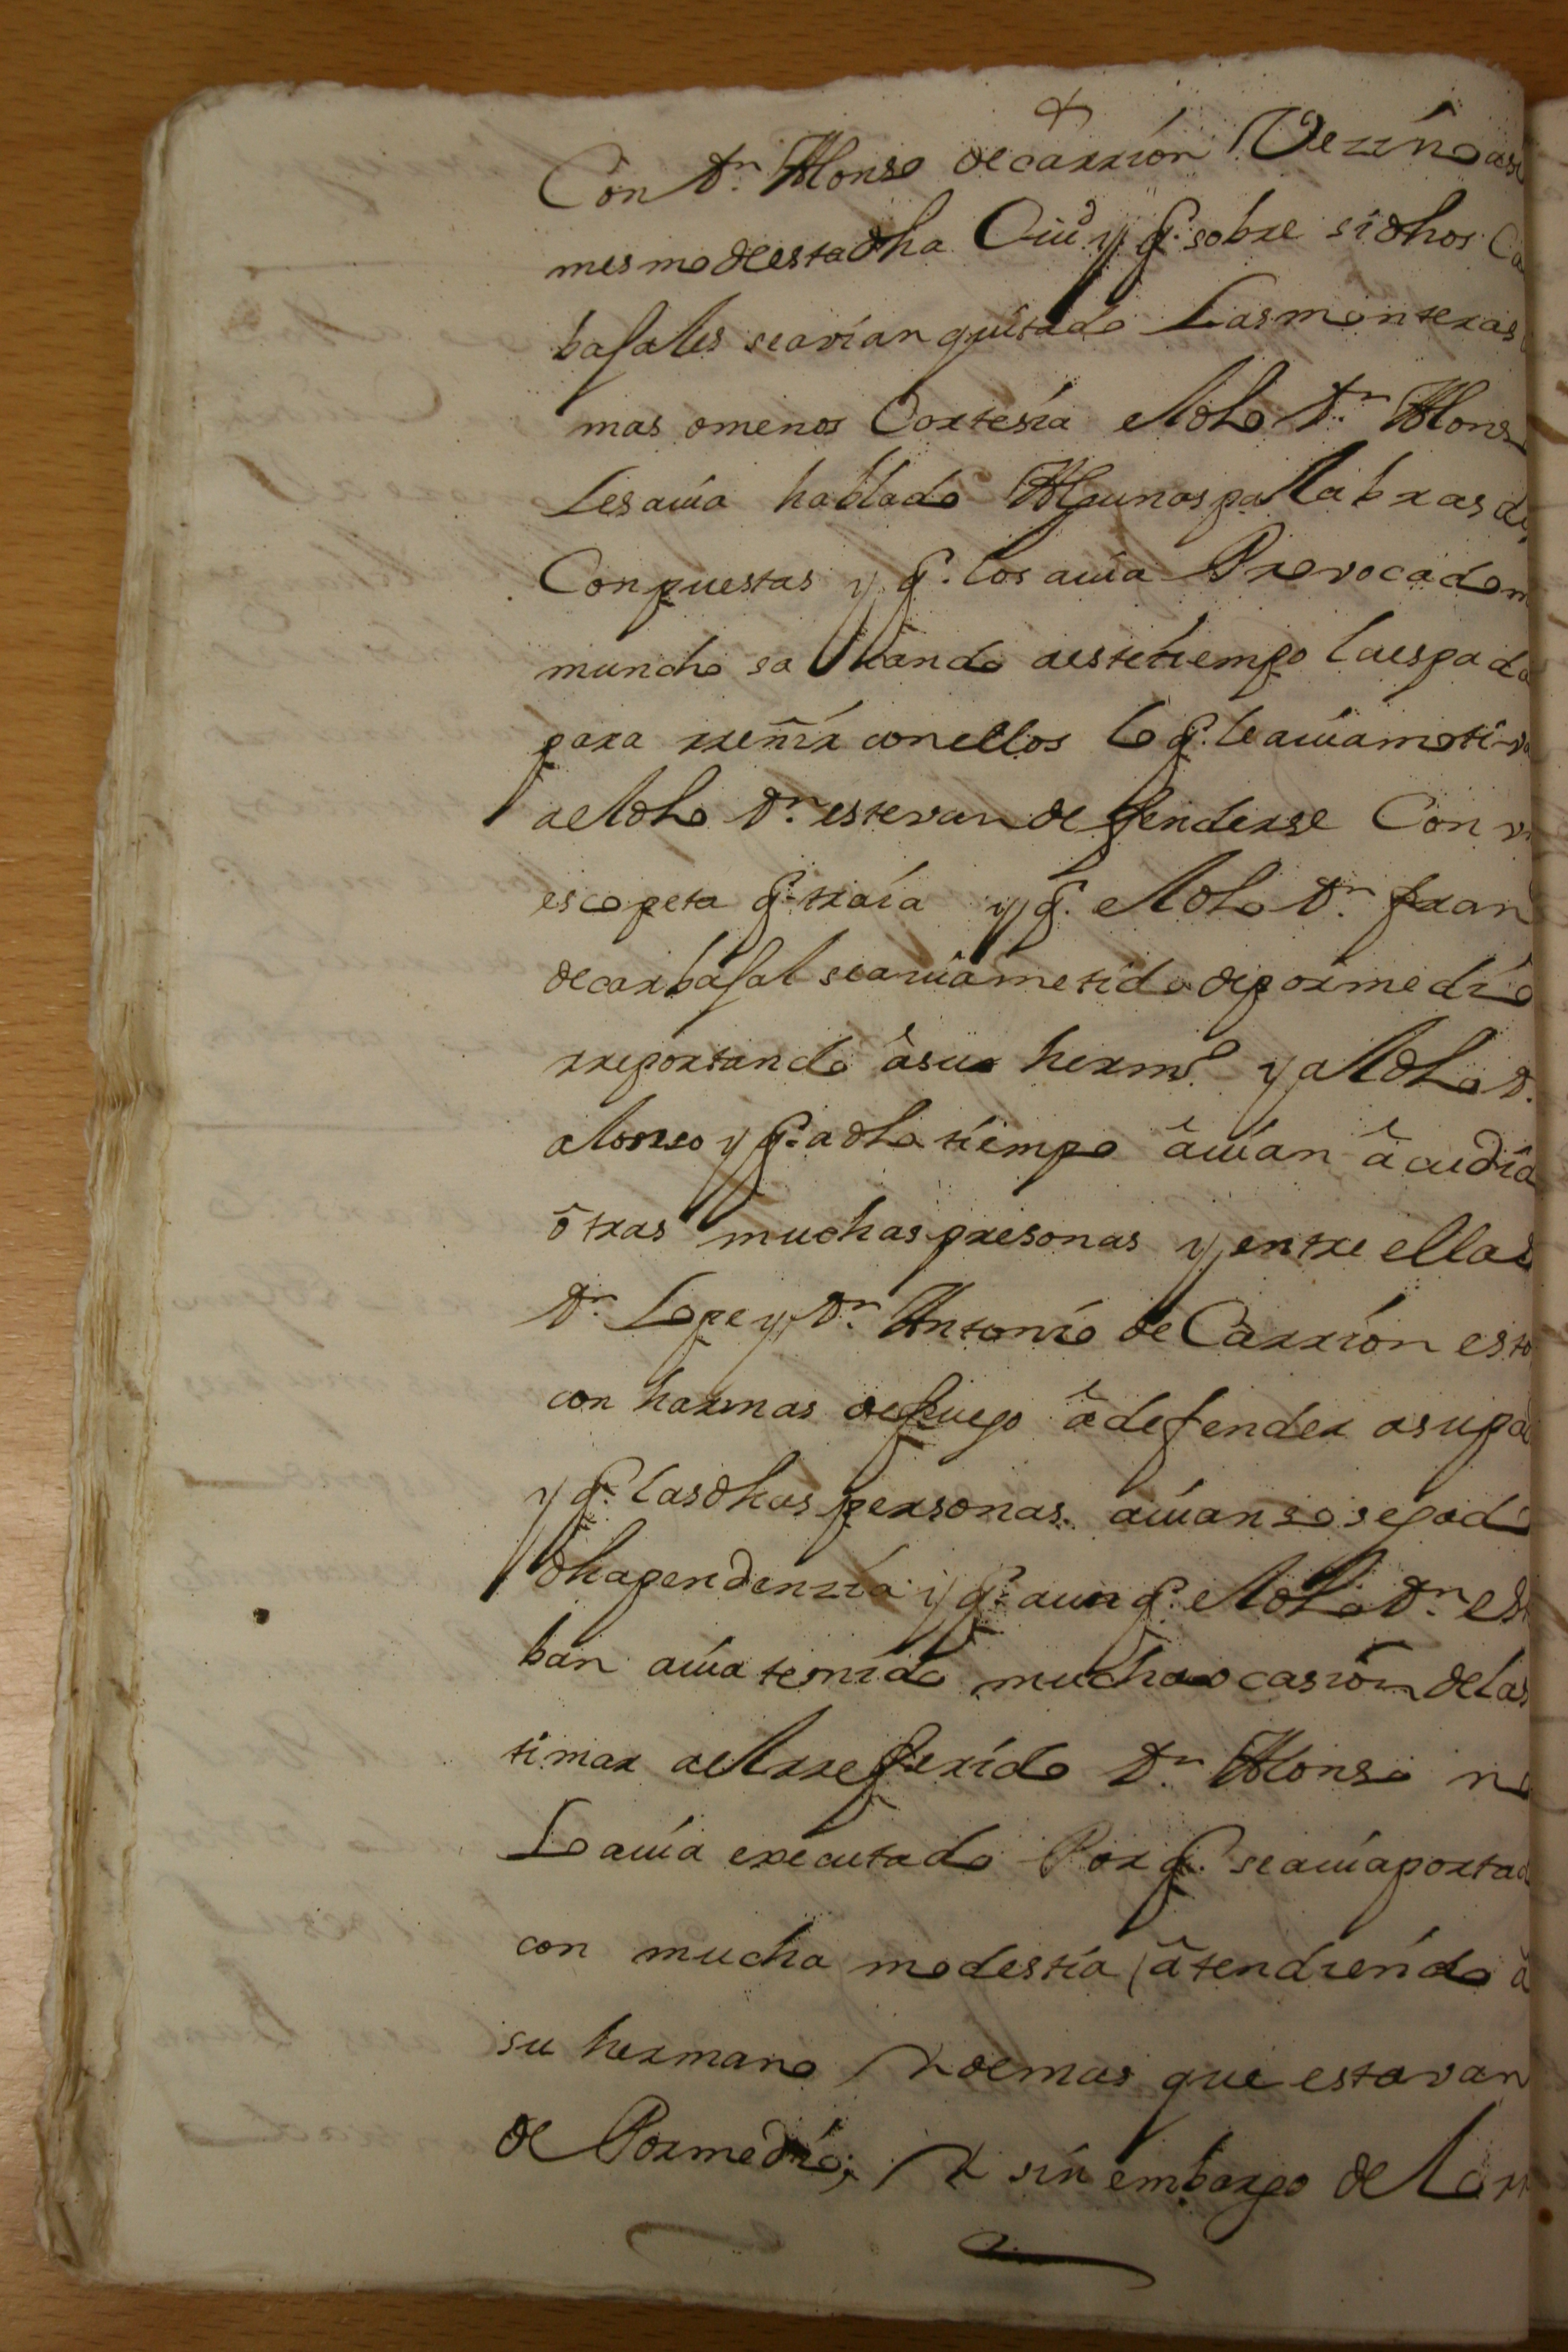 Con Dn. Alonso de carrion Vezino asi
mesmo de esta dha Ciud. y q. sobre si dhos Ca
bajales se avian quitado Las monteras
mas o menos Cortesia el dho Dn. Alons
Les auia hablado Algunas pallabras d
Conpuestas y q. los auia Provocado
muncho sacando a este tiempo la espada
para rreñir con ellos lo q. le auia moti
a el dho Dn. estevan defenderse Con
escopeta q. traia y q. el dho Dn. fran
de carbajal se auia metido de por medio
rreportando a su hermo. y al dho D.
alonso y q. a dho tiempo auian acudi
otras muchas presonas y entre ellas
Dn. Lope y Dn. Antonio de Carrion esto
con harmas de fuego a defender a su pa
y q. las dhas personas auian sosegado
dha pendenzia y q. aun q. el dho Dn. es
ban auia tenido mucha ocasion de las
timar a el rreferido Dn. Alonso no
Lo auia executado Por q. se auia portad
con mucha modestia atendiendo a
su hermano Y demas que estavan
de Por medio; Y sin embargo de lo rr